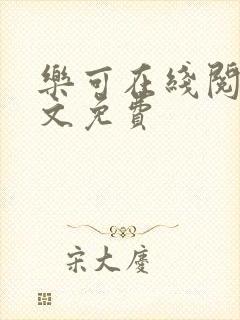 樂可在綫閱
文免費
宋大慶